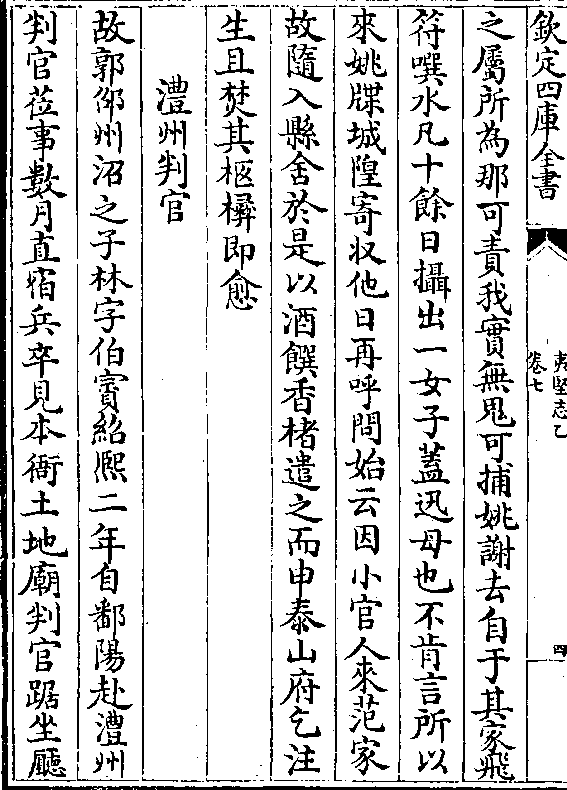 欽定四庫全書
夷堅志乙
卷七
四
之屬所為那可責我實無鬼可捕姚謝去自于其家飛
符噀水凡十餘日攝出一女子蓋迅母也不肯言所以
來姚牒城隍寄收他日再呼問始云因小官人來范家
故隨入縣舍於是以酒饌香楮遣之而申泰山府乞注
生且焚其柩櫘即愈
澧州判官
故郭邵州沼之子林字伯賓紹熙二年自鄱陽赴澧州
判官莅事數月直宿兵卒見本衙土地廟判官踞坐廳